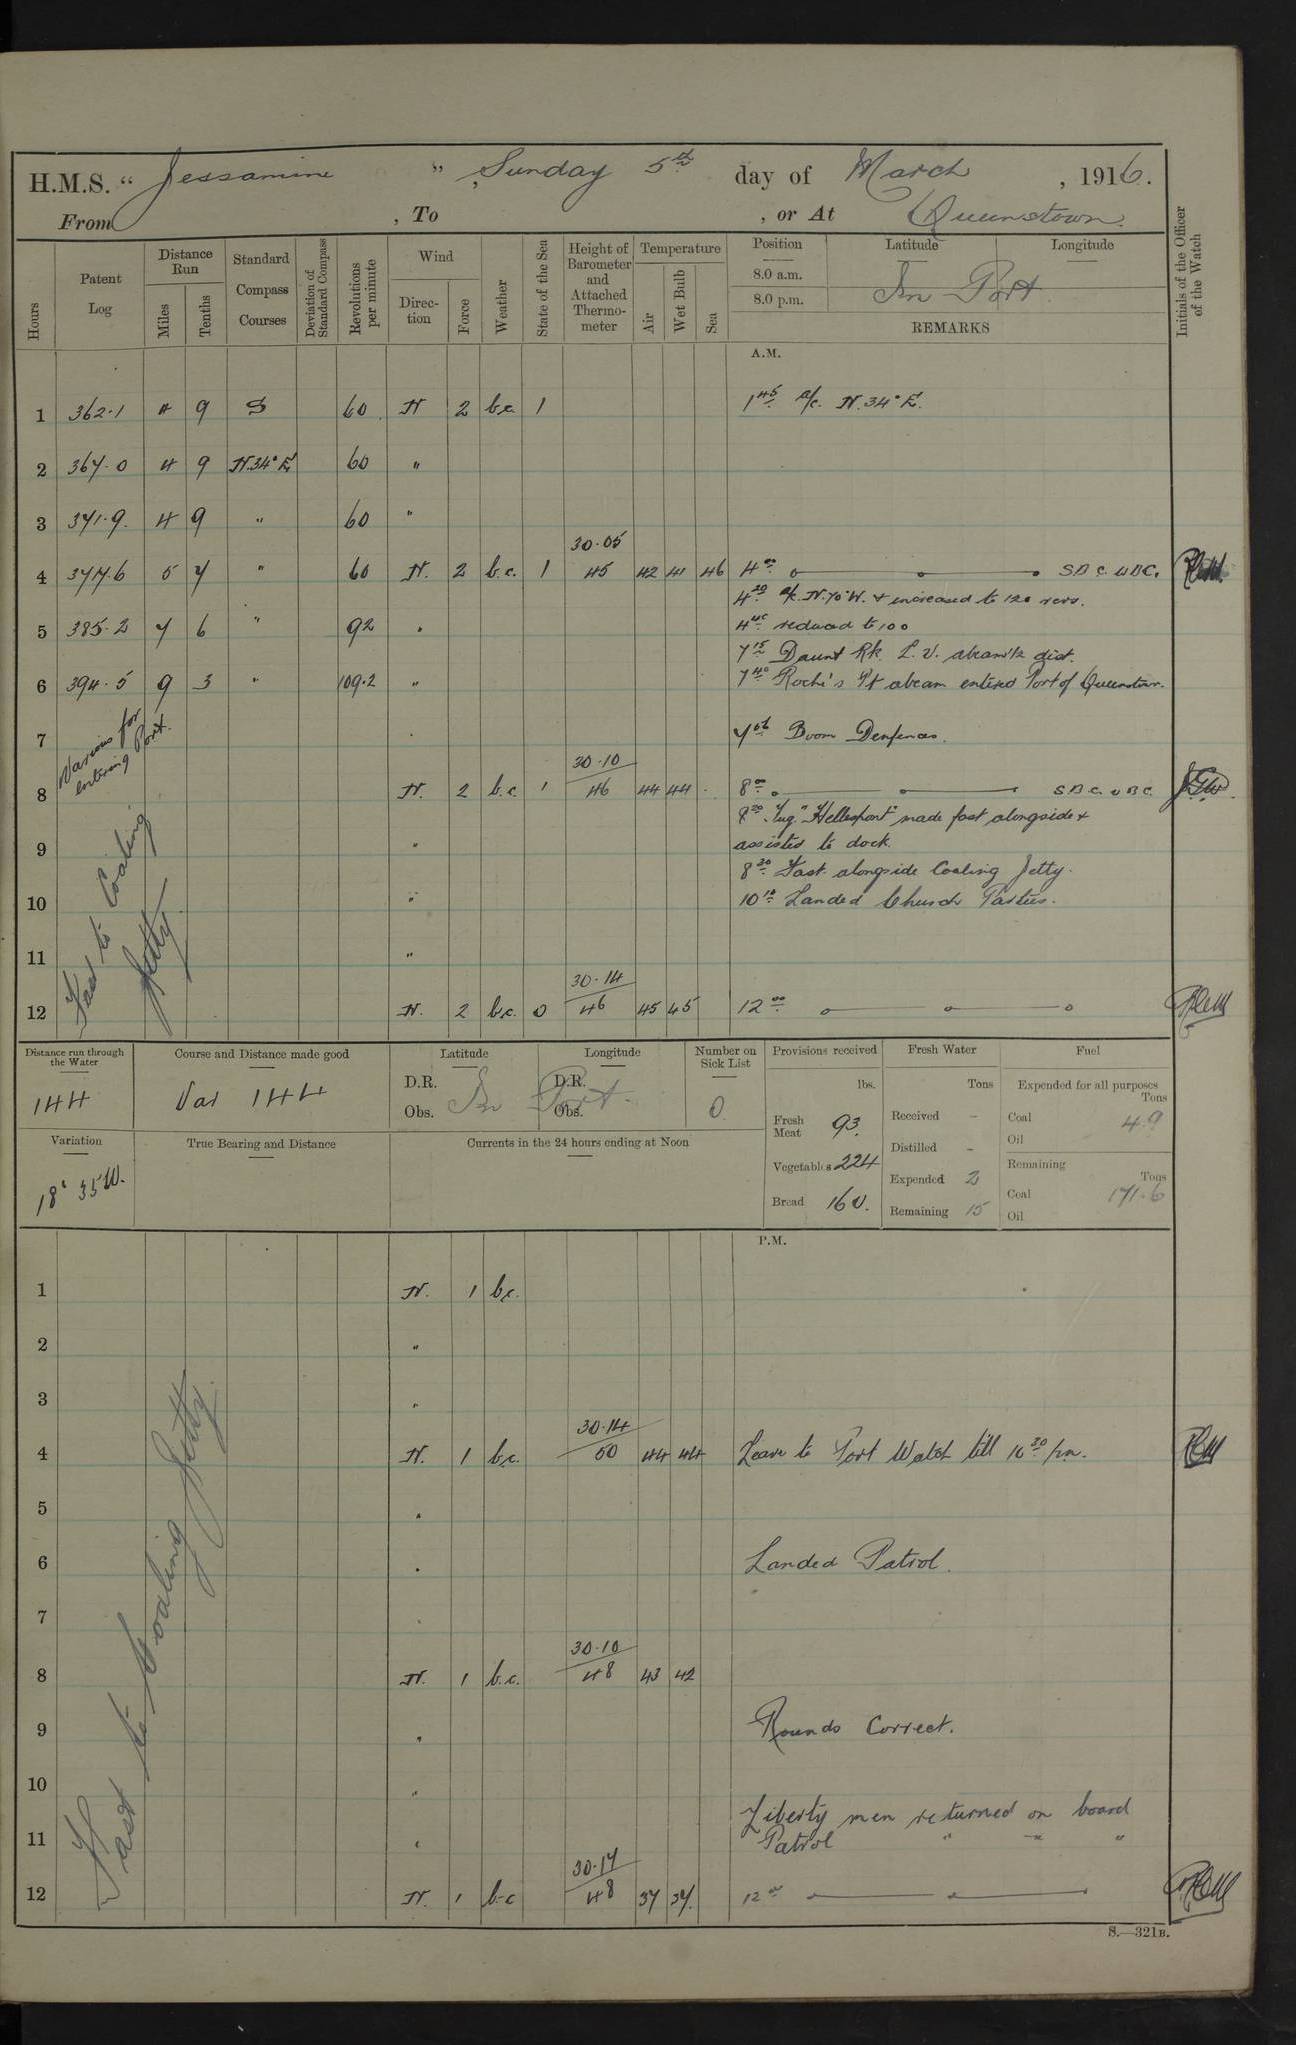 H.M.S. " Jessamine ", Sunday 5th day of March, 1916.
From , To , or At Queenstown
Hours
Patent Log
Distance Run
Miles
Tenths
Standard Compass Courses
Deviation of Standard Compass
Revolutions per minute
Wind
Direction
Force
Weather
State of the Sea
Height of Barometer and Attached Thermometer
Temperature
Air
Wet Bulb
Sea
Position
Latitude
Longitude
8.0 a.m.
8.0 p.m.
In Port
REMARKS
Initials of the Officer of the Watch
A.M.
1 362.1 4 9 S 60 N 2 b.c. 1 1 45 a/c. N.34°E.
2 367.0 4 9 N.34°E 60 "
3 371.9 4 9 " 60 "
30.05
4 377.6 5 7 " 60 N. 2 b.c. 1 45 42 41 46 4 00 S.D.C. W.D.C.
4 20 a/c. N.70°W. & increased to 120 revs.
5 385.2 7 6 " 92 " reduced to 100
7 15 Daunt Rk. L.V. abeam 1/2 dist.
6 394.5 9 3 " 109.2 " 7 40 Roche's Pt abeam entered Port of Queenstown.
7 Various for entering Port. Boom Denfences.
30.10
8 N. 2 b.c. 1 46 44 44 8 00 S.D.C. W.D.C.
8 20 Tug "Hellespont" made fast alongside &
9 " assisted to dock.
8 30 Fast alongside Coaling Jetty.
10 " 10 10 Landed Church Parties.
11 "
Fast to Coaling Jetty
30.14
12 N. 2 b.c. 0 46 45 45 12 00
Distance run through the Water
144
Course and Distance made good
Var 144
Latitude
Longitude
D.R. D.R.
Obs. Obs.
In Port
Number on Sick List
0
Provisions received
lbs.
Fresh Meat 93.
Vegetables 224
Bread 160.
Fresh Water
Tons
Received -
Distilled -
Expended 2
Remaining 15
Fuel
Expended for all purposes
Tons
Coal 4.9
Oil
Remaining
Tons
Coal 171.6
Oil
Variation
18° 35 W.
True Bearing and Distance
Currents in the 24 hours ending at Noon
P.M.
1 N. 1 b.c.
2 "
3 "
30.14
4 N. 1 b.c. 50 44 44 Leave to Port Watch till 10 30 p.m.
5 "
6 " Landed Patrol.
7 "
30.10
8 N. 1 b.c. 48 43 42
9 " Rounds Correct.
10 "
Liberty men returned on board
11 " Patrol " " "
30.17
12 N. 1 b.c 48 37 37. 12 00
Fast to Coaling Jetty
S.—321B.